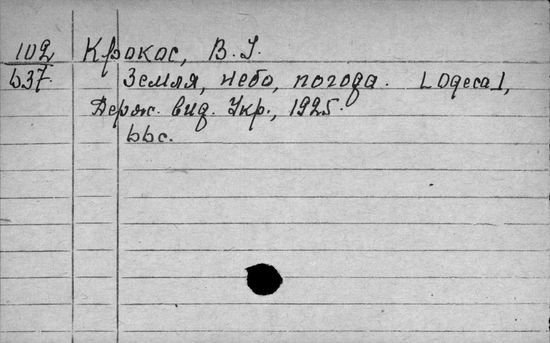 102 Крокос, В.І.
637. Земля, небо, погода. [Одеса],
Держ. вид. Укр., 1925.
66с.